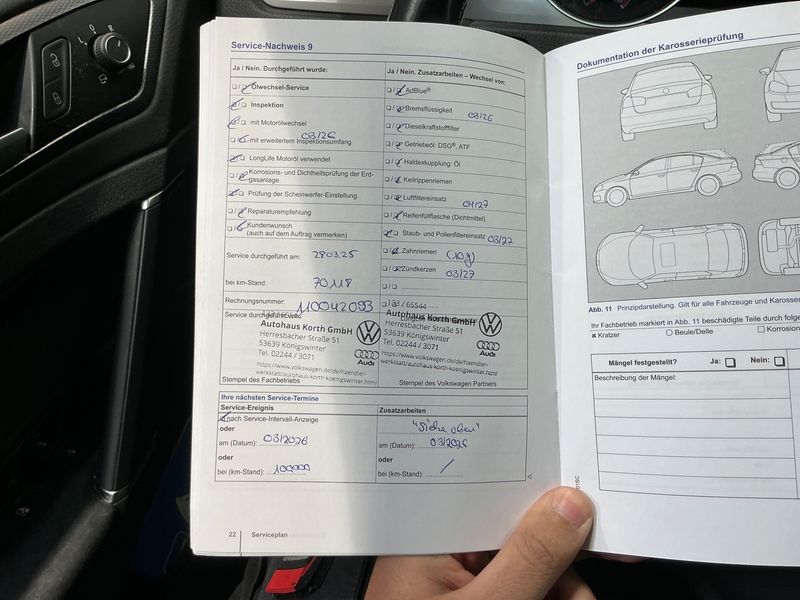 Service-Nachweis 9
Ja / Nein. Durchgeführt wurde:
Ölwechsel-Service
Inspektion
mit Motorölwechsel
03/26
mit erweitertem Inspektionsumfang
LongLife Motoröl verwendet
Korrosions- und Dichtheitsprüfung der Erd-
gasanlage
Prüfung der Scheinwerfer-Einstellung
Reparaturempfehlung
Kundenwunsch
(auch auf dem Auftrag vermerken)
Service durchgeführt am: 28.03.25
bei km-Stand: 70118
Rechnungsnummer: 110042093
Service durchgeführt
Autohaus Korth GmbH
Herresbacher Straße 51
53639 Königswinter
Tel. 02244 / 3071
Audi
https://www.volkswagen.de/de/haendler-
werkstatt/autohaus-korth-koenigswinter.html
Stempel des Fachbetriebs
Ja / Nein. Zusatzarbeiten – Wechsel von:
AdBlue®
Bremsflüssigkeit 03/26
Dieselkraftstofffilter
Getriebeöl: DSG®, ATF
Haldexkupplung: Öl
Keilrippenriemen
Luftfiltereinsatz 04/27
Reifenfüllflasche (Dichtmittel)
Staub- und Pollenfiltereinsatz 03/27
Zahnriemen
Zündkerzen 03/27
/ 65544
Autohaus Korth GmbH
Herresbacher Straße 51
53639 Königswinter
Tel. 02244 / 3071
Audi
https://www.volkswagen.de/de/haendler-
werkstatt/autohaus-korth-koenigswinter.html
Stempel des Volkswagen Partners
Ihre nächsten Service-Termine
Service-Ereignis
nach Service-Intervall-Anzeige
oder
am (Datum): 03/2026
oder
bei (km-Stand): 100000
Zusatzarbeiten
"Siehe oben"
am (Datum): 03/2026
oder
bei (km-Stand): /
22 Serviceplan
Dokumentation der Karosserieprüfung
Abb. 11 Prinzipdarstellung. Gilt für alle Fahrzeuge und
Ihr Fachbetrieb markiert in Abb. 11 beschädigte Teile durch
Kratzer
Beule/Delle
Mängel festgestellt? Ja: Nein:
Beschreibung der Mängel: